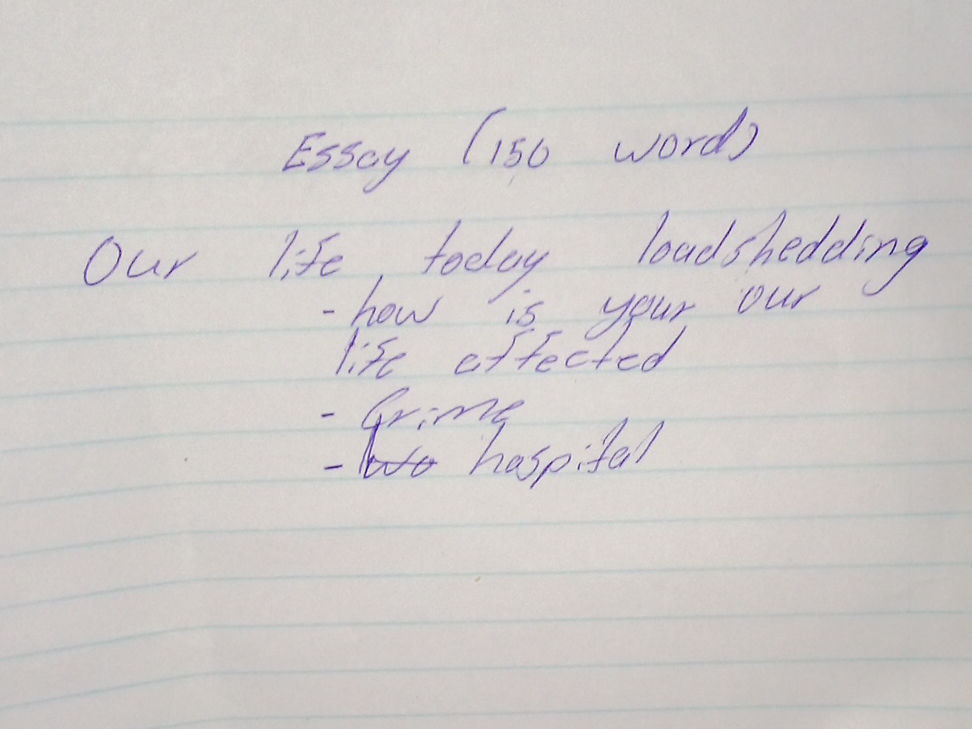 Essay (150 word)
Our life, today loadshedding
- how is your our
life affected
- Crime
- hospital